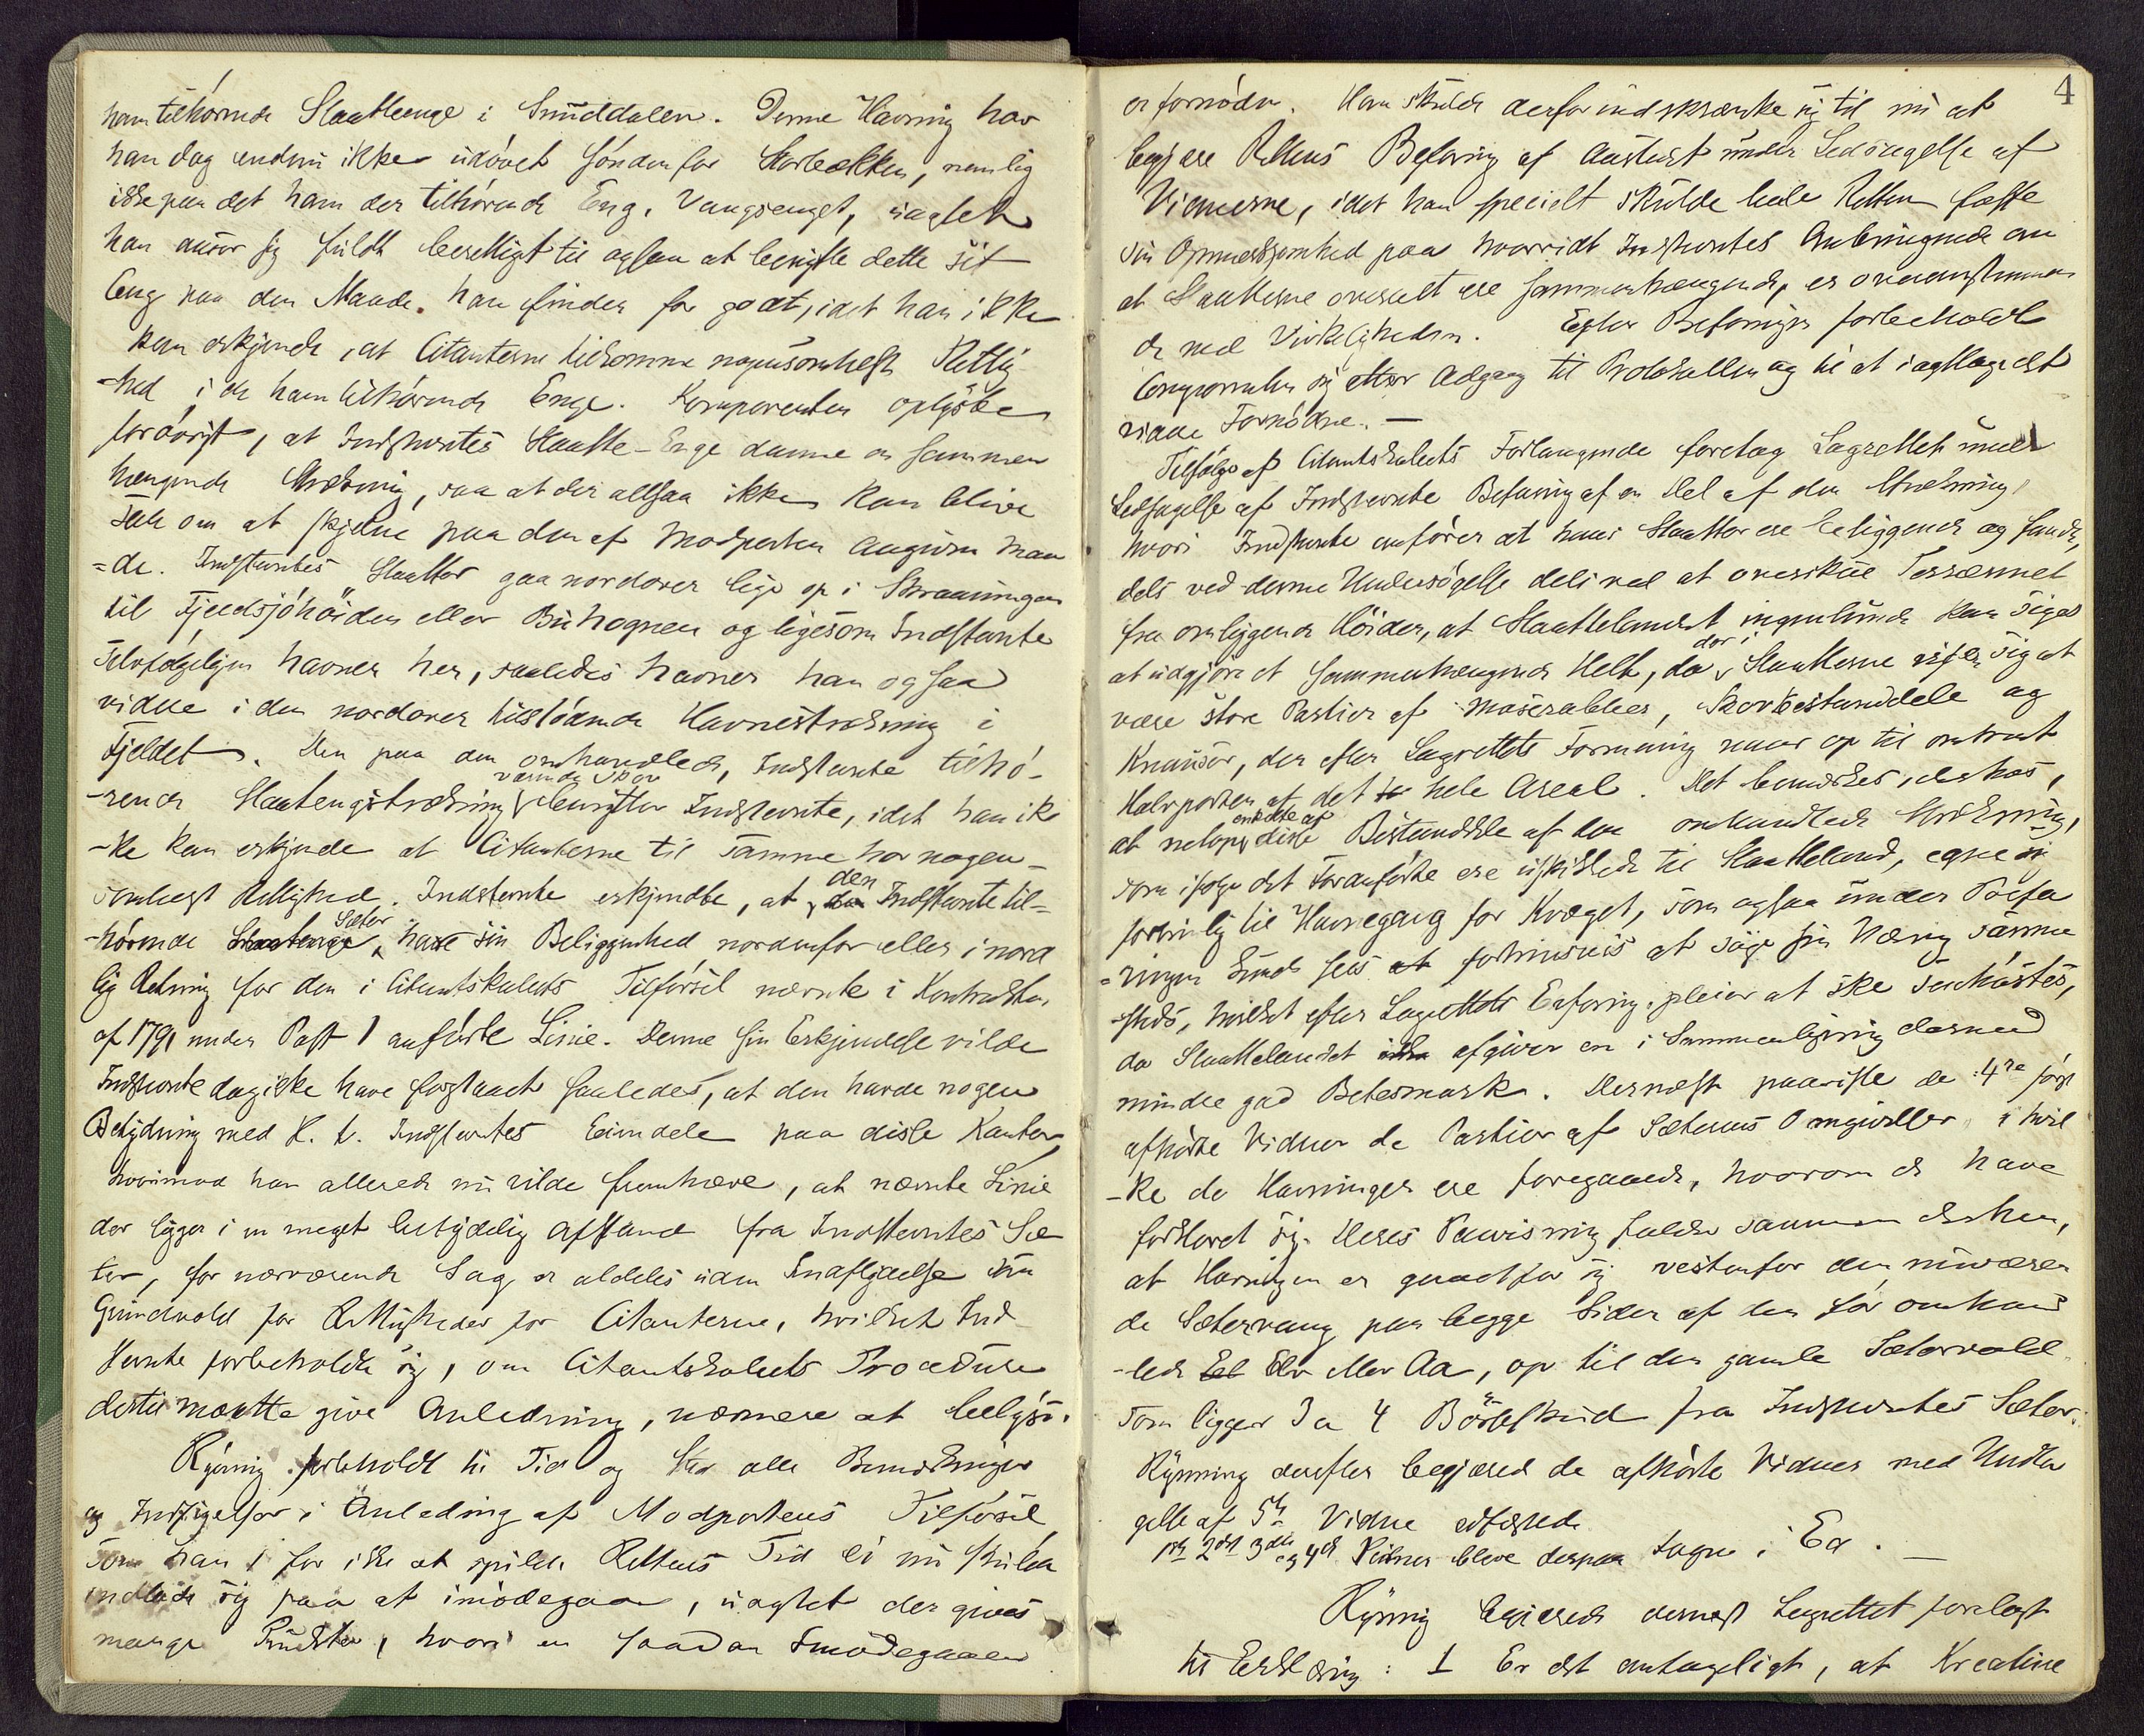 ham tilhørende Slaatteenge i Smuddalen. Denne Havning har
han dog endnu ikke udøvet søndenfor Storbækken, nemlig
ikke paa det ham der tilhørende Eng, Vangsenget, uagtet
han anser sig fuldt berettiget til ogsaa at benytte dette sit
Eng paa den Maade, han finder for godt, idet han ikke
kan erkjende, at Citanterne tilkomme nogensomhelst Rettig-
-hed i de ham tilhørende Enge. Komparenten oplyste
forøvrigt, at Indstevntes Slaatte-Enge danne en sammen
hængende Strækning, saa at der altsaa ikke kan blive
Tale om at skjelne paa den af Modparten angivne Maa
=de. Indstevntes Slaatter gaa nordover lige op i Skraaningen
til Fjeldsjøhøiden eller Buhognen og ligesom Indstevnte
selvfølgeligen havner her, saaledes havner han ogsaa
videre i den nordover tilstødende Havnestrækning i
Fjeldet. Den paa den omhandlede, Indstevnte tilhø-
værende Skov
-rende Slaatengstrækning benytter Indstevnte, idet han ik-
-ke kan erkjende at Citanterne til samme har nogen-
somhelst Rettighed. Indstevnte erkjendte, at den Indstevnte til-
-hørende Sæter have sin Beliggenhed nordenfor eller i nord
lig Retning for den i Citantskabets Tilførsel nævnte i Kontrakten
af 1791 under Post 1 anførte Linie. Denne sin Erkjendelse vilde
Indstevnte dog ikke have forstaaet saaledes, at den havde nogen
Betydning med H. t. Indstevntes Eiendele paa disse Kanter,
hvorimod han allerede nu vilde fremhæve, at nævnte Linie
der ligger i en meget betydelig Afstand fra Indstevntes Sæ
ter, for nærværende Sag er aldeles uden Indflydelse som
Grundvold for Rettigheder for Citanterne, hvilket Ind-
stevnte forbeholdt sig, om Citantskabets Procedure
dertil maatte give Anledning, nærmere at belyse.
Rynning forbeholdt til Tid og Sted alle Bemærkninger
og Indsigelser i Anledning af Modpartens Tilførsel,
som han, for ikke at spilde Rettens Tid ei nu skulde
indlade sig paa at imødegaa, uagtet der gives
mange Punkter, hvori en saadan Imødegaaen
4
er fornøden. Han skulde derfor indskrænke sig til nu at
begjære Rettens Befaring af Aastedet under Ledsagelse af
Vidnerne, idet han specielt skulde bede Retten fæste
sin Opmærksomhed paa hvorvidt Indstevntes Anbringende om
at Slaatterne overalt ere sammenhængende, er overensstemmen
de med Virkeligheden. Efter Befaringen forbeholdt
Comparenten sig Adgang til Protokollen og til at iagttage det
videre Fornødne. —
Tilfølge af Citantskabets Forlangende foretog Lagrettet under
Ledsagelse af Indstevnte Befaring af en Del af den Strækning,
hvori Indstevnte anfører at hans Slaatter ere beliggende og fandt,
dels ved denne Undersøgelse dels ved at overskue Terrænnet
fra omliggende Høider, at Slaattelandet ingenlunde kan siges
at udgjøre et sammenhængende Helt, da der i Slaatterne viser sig at
være store Partier af Moserabber, Skovbestanddele og
Knauser, der efter Lagrettets Formening naar op til omtrent
Halvparten af det hele Areal. Det bemærkes, derhos,
at netop enkelte af disse Bestanddele af den omhandlede Strækning,
som ifølge det Foranførte ere uskikkede til Slaatteland, egne sig
fortrinlig til Havnegang for Kvæget, som ogsaa under Befa
=ringen fandt sees fortrinsvis at søge sin Næring samme
steds, hvilket efter Lagrettets Erfaring pleier at ske senhøstes,
da Slaattelandet afgiver en i Sammenligning dermed
mindre god Betesmark. Dernæst paaviste de 4re først
afhørte Vidner de Partier af Sæterens Omgivelser, i hvil
-ke de Havninger ere foregaaede, hvorom de have
forklaret sig. Deres Paavisning faldt sammen derhen,
at Havningen er gaaet for sig vestenfor den nuværen
de Sætervang paa begge Sider af den før omhand
-lede Elv eller Aa, op til den gamle Sætervold
som ligger 3 a 4 Børseskud fra Indstevntes Sæter.
Rynning derefter begjærede de afhørte Vidner med Undta
gelse af 5te Vidne edfæstede
1ste 2det 3die og 4de Vidner bleve derpaa tagne i Ed. —
Rynning begjærede dernæst Lagrettet forelagt
til Erklæring: 1 Er det antageligt, at Kreatüre